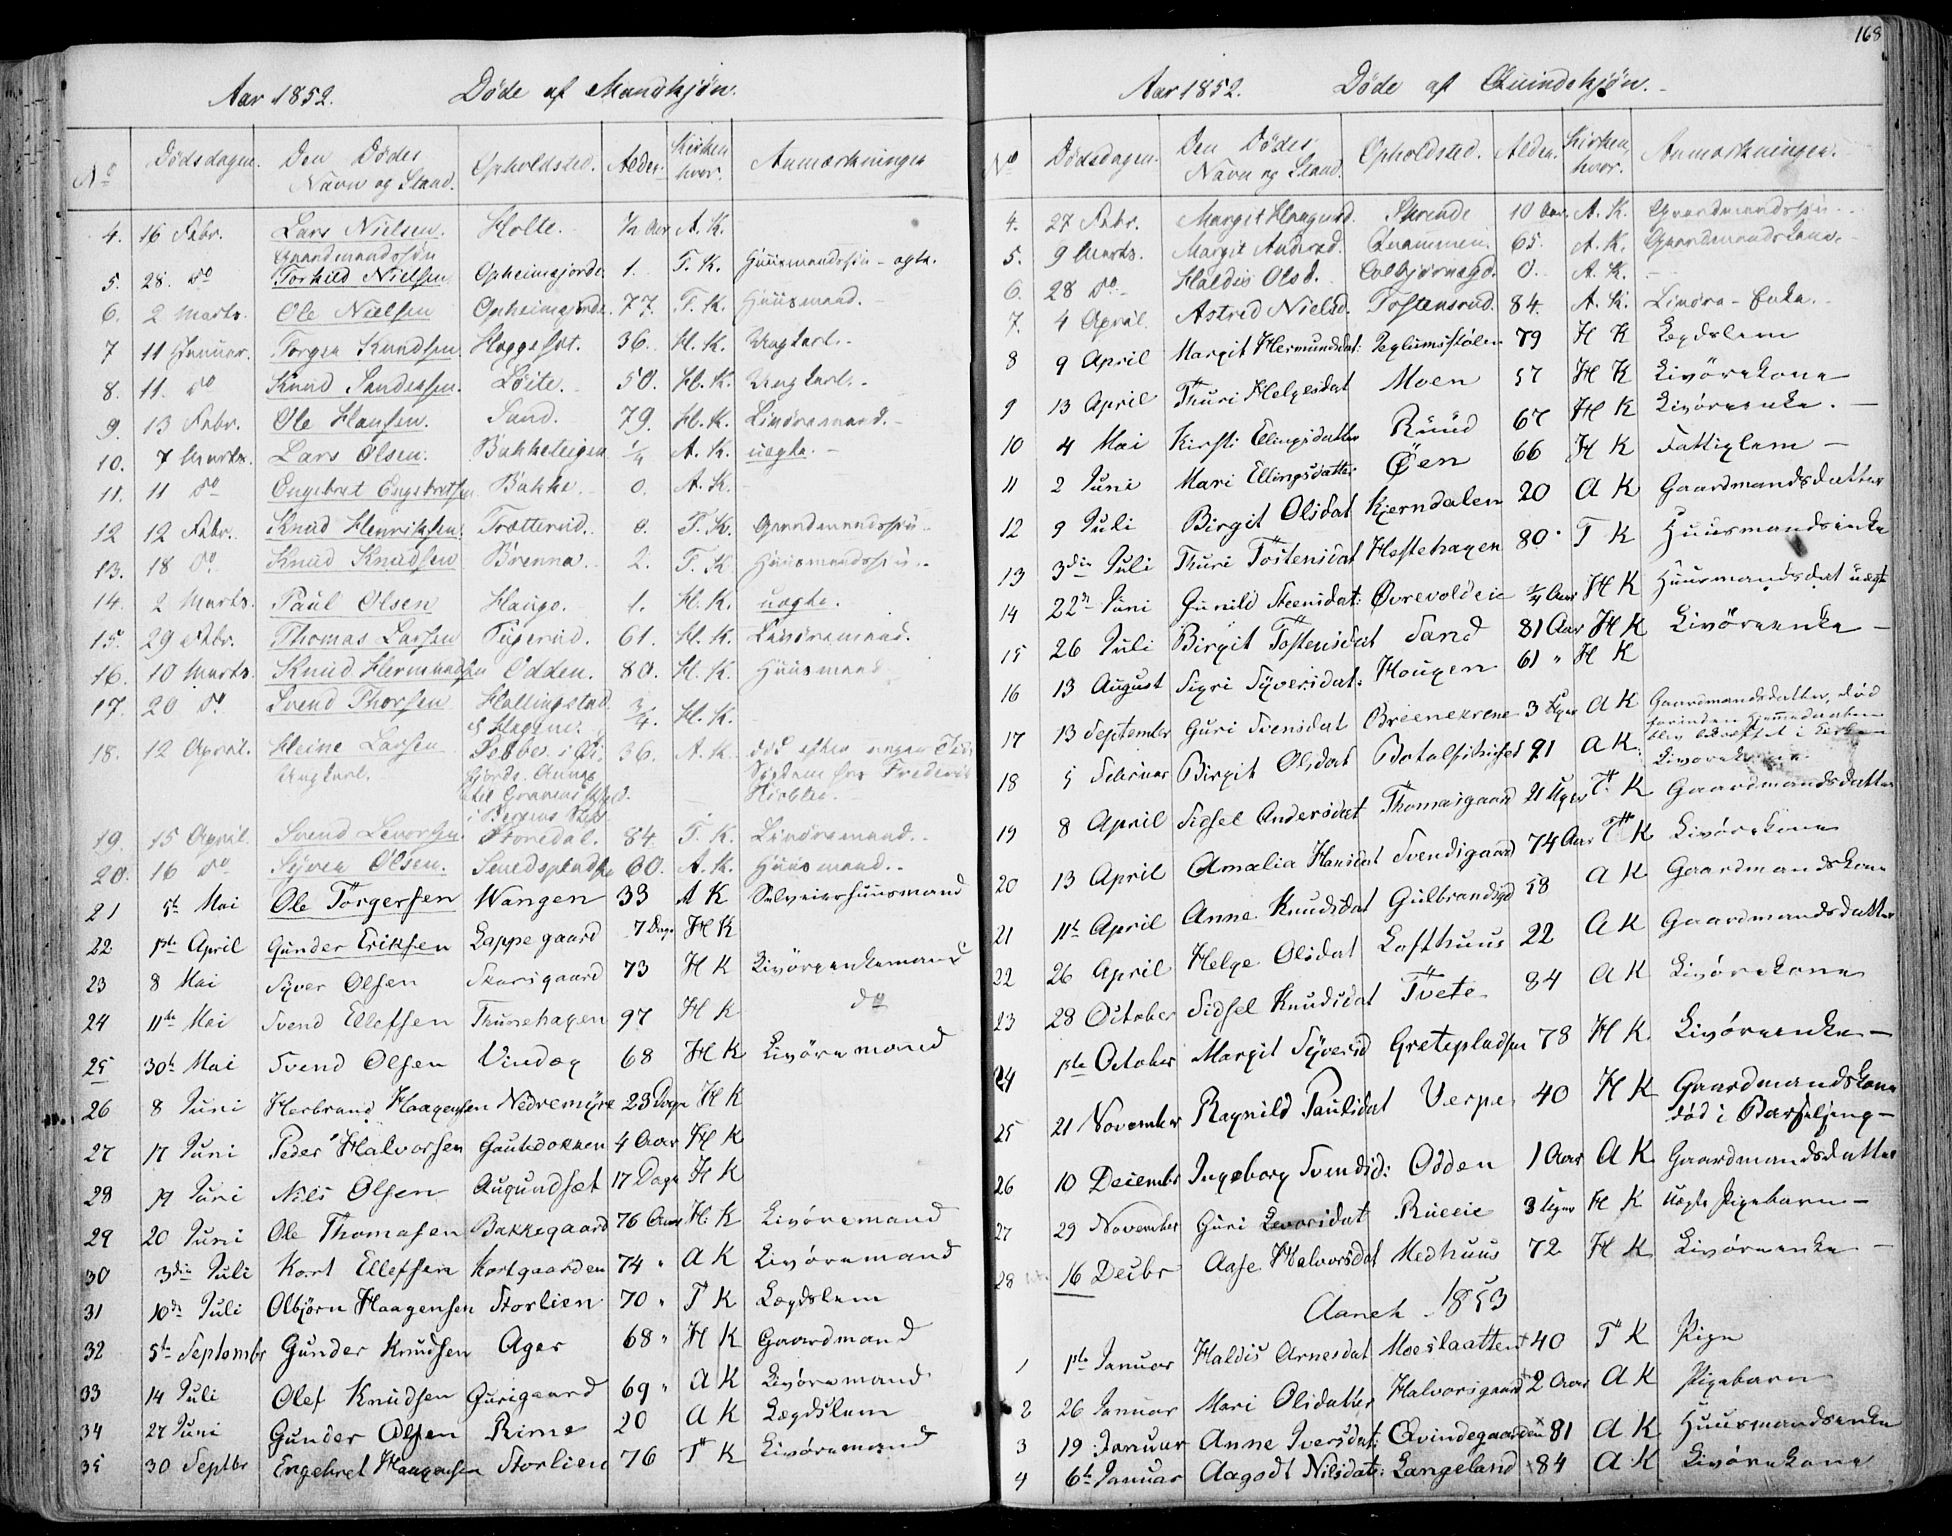 168
Aar 1852. Døde af Mandkjøn.
No Dødsdagen. Den Dødes Navn og Stand. Opholdsted. Alder. Kirken hvor. Anmærkninger
4. 16 Febr. Lars Nielsen. Holte. ½ Aar A. K.
Gaardmandssøn
5. 28. do Torkild Nielsen Opheimsjorde 1. T. K. Huusmandssøn - ægte.
6. 2 Marts. Ole Nielsen Opheimsjorde. 77. T. K. Huusmand.
7 11 Januar. Torger Knudsen Haggeset. 36. H. K. Ungkarl.
8. 11. do Knud Sandersen. Løite. 50. H. K. Ungkarl.
9. 13 Febr. Ole Hansen. Sand. 79. H. K. Livøremand.
10. 7 Marts. Lars Olsen. Bakketeigen ¼ A. K. uægte.
11. 11 do Engebret Engebretsen Bakke. 0. A. K.
12 12 Febr. Knud Henriksen. Trætterud. 0. T. K. Gaardmandssøn.
13. 18 do Knud Knudsen Brenna. 2. T. K Huusmandssøn.
14. 2 Marts. Paul Olsen Hango. 1. H. K. uægte.
15. 29 Febr. Thomas Larsen 61. H. K. Livøremand.
16. 10 Marts. Knud Hermundsen Odden. 80. H. K. Huusmand
17. 20 do Svend Thorsen Hallingstad ¾. H. K.
18. 12 April. Heine Larsen 36. A. K. død efter
Ungkarl.
19. 15 April Svend Levorsen Storedal. 84. T. K. Livøremand.
20. 16 do Syver Olsen. 60. A. K. Huusmand.
21 5te Mai Ole Torgersen Wangen 33 A K Selveierhuusmand
22 1ste April Gunder Eriksen Lappegaard 7 Dage H K
23 8 Mai Syver Olsen Skarsgaard 73 H K Livørenkemand
24 11te Mai Svend Ellefsen Thunehagen 97 H K do
25 30te Mai Svend Olsen Vindeg 68 H K Livøremand
26 8 Juni Herbrand Haagensen Nedremyre 23 Dage H K
27 17 Juni Peder Halvorsen Gautedokken 4 Aar H K
28 19 Juni Nils Olsen Augundset 17 Dage H K
29 20 Juni Ole Thomasen Bakkegaard 76 Aar H. K Livøremand
30 3die Juli Kort Ellefsen Kortgaarden 74 " A K Livøremand
31 10de Juli Olbjørn Haagensen Storlien 70 " T K Lægdslem
32 5te Septembr Gunder Knudsen Ager 68 " H K Gaardmand
33 14 Juli Olef Knudsen Gurigaard 69 " A K Livøremand
34 27 Juni Gunder Olsen Rime 20 A K Lægdslem
35 30 Septbr Engebret Haagensen Storlien 76 T K Livøremand
Aar 1852. Døde af Quindekjøn.
No Dødsdagen. Den Dødes Navn og Stand. Opholdsted. Alder. Kirken, hvor. Anmærkninger.
4. 27 Febr. Margit Haagensd. 10 Aar. A. K. Gaardmandss
5. 9 Marts. Margit Andersd. Qvammen. 65. A. K. Gaardmandskone.
6. 28 do Haldis Olsd. 0. A. K.
7. 4 April. Astrid Nielsd. Tostensrud. 84. A. K. Livøre-Enke.
8 9 April Margit Hermundsdat: Teglumstølen 79 H K Lægdslem
9 13 April Thuri Helgesdat Moen 57 H K Livørekone
10 4 Mai Kirsti Ellingsdatter Ruud 67 H K Livøreenke.
11 2 Juni Mari Ellingsdatter Øen 66 H K Fattiglem
12 9 Juli Birgit Olsdat Kjerndalen 20 A K Gaardmandsdatter
13 3die Juli Thuri Tostensdat Hestehagen 80 T K Huusmandsenke
14 22de Juni Gunild Steensdat: Øvrevolden ¾ Aar H K Huusmandsdat uægt
15 26 Juli Birgit Tostensdat Sand 81 Aar H K Livøreenke
16 13 August Sigri Syversdat: Haugen 61 " H K
17 13 September Guri Svensdat Breenegrene 3 Uger A K Gaardmandsdatter, død
18 5 Februar Birgit Olsdat 91 A K. Livørekone
19 8 April Sidsel Andersdat Thomasgaard 21 Uger T. K Gaardmandsdatter
20 13 April Amalia Hansdat Svendsgaard 74 Aar T K Livørekone
21 11te April Anne Knudsdat Gulbrandsgd 58 A K Gaardmandskone
22 26 April Helge Olsdat Lofthuus 22 A K Gaardmandsdatter
23 28 October Sidsel Knudsdat Tveto 84 A K Livørekone
24 1ste October Margit Syversd Gretepladsen 78 H K Livøreenke
25 21 November Ragnild Paulsdat Verpe 40 H K Gaardmandskone
død i Barselseng
26 10 Decembr Ingeborg Svendsd: Odden 1 Aar A K Gaardmandsdatter
27 29 November Guri Levorsdat 3 Uger H K Uægte Pigebarn
28 16 Decbr Aase Halvorsdat Medhuus 72 H K Livøreenke
Aaret 1853
1 1ste Januar Haldis Arnesdat Moeslaatten 40 T K Pige
2 26 Januar Mari Olsdatter Halvorsgaard 2 Aar A K Pigebarn
3 19 Januar Anne Iversdat: Qvindegaarden 81 A K Huusmandsenke
4 6te Januar Aagodt Nilsdat: Langeland 84 A K Livørekone